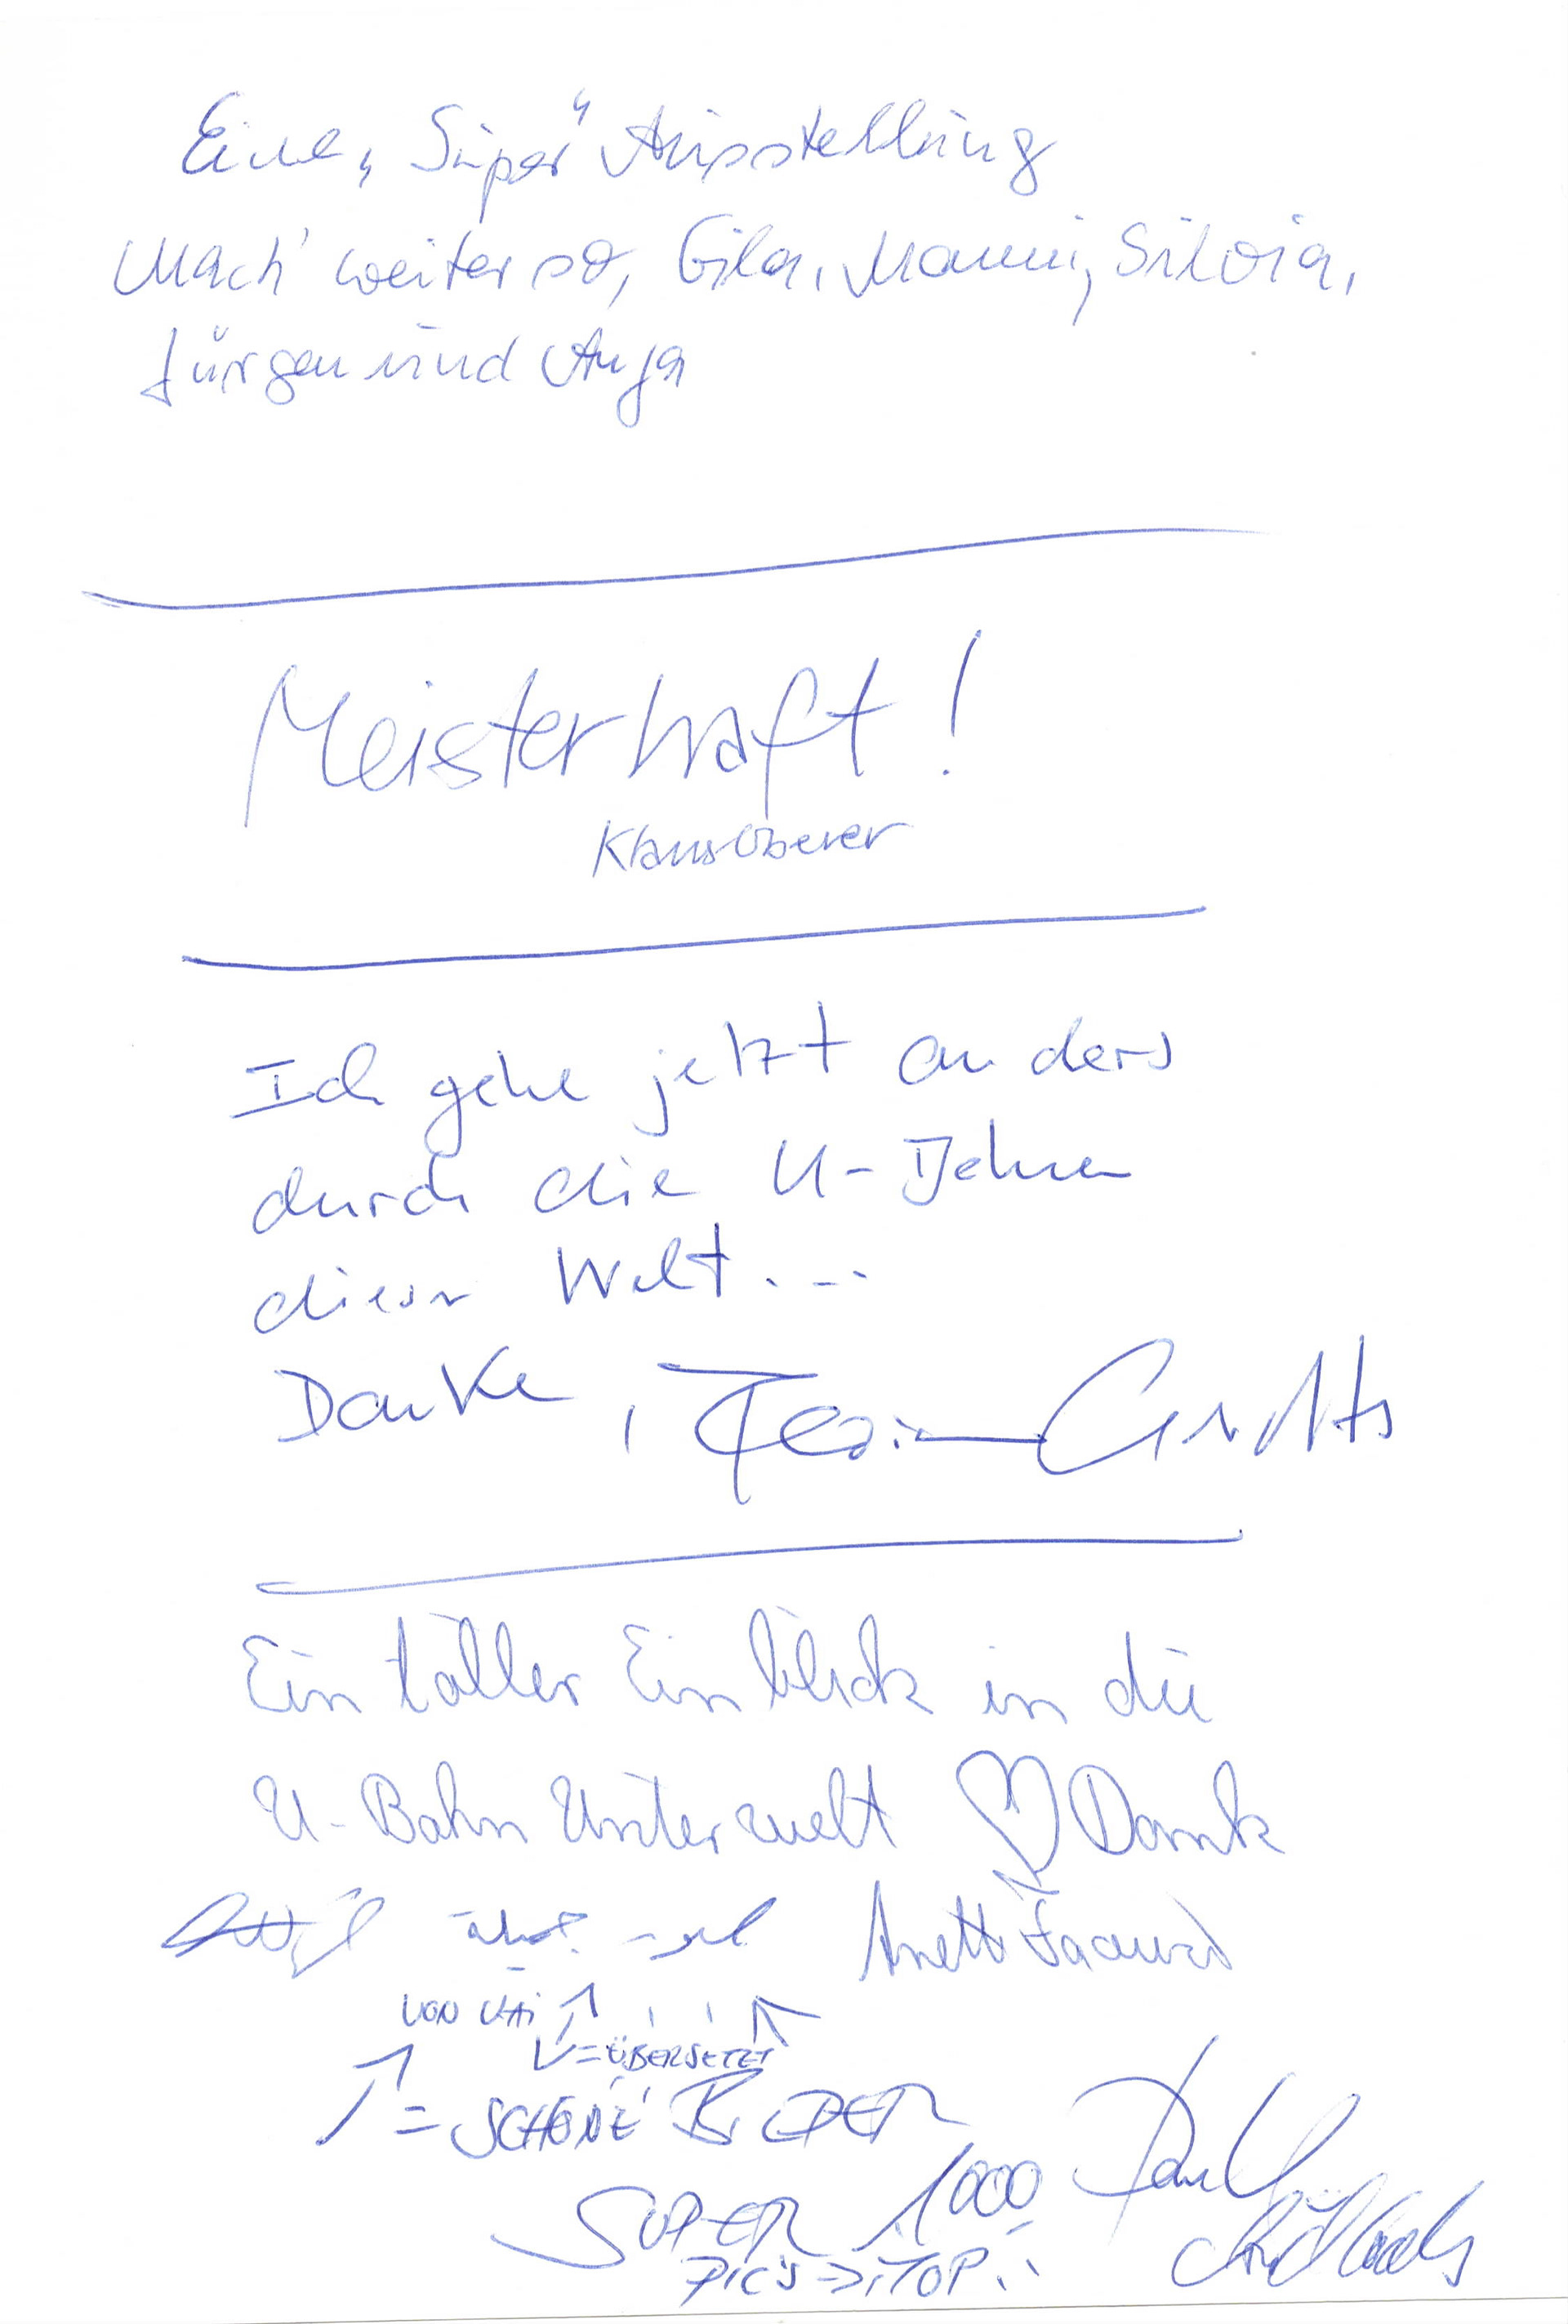 Eine „Super“ Ausstellung
Mach' weiter so, Gila, Manni, Silvia,
Jürgen und Anja
Meisterhaft!
Klaus Oberer
Ich gehe jetzt anders
durch die U-Bahn
dieser Welt...
Danke,
Ein toller Einblick in die
U-Bahn Unterwelt Dank
Anett
VON KAI
= ÜBERSETZT
= SCHÖNE BILDER
SUPER 1000 Dank
PIC'S -> TOP!